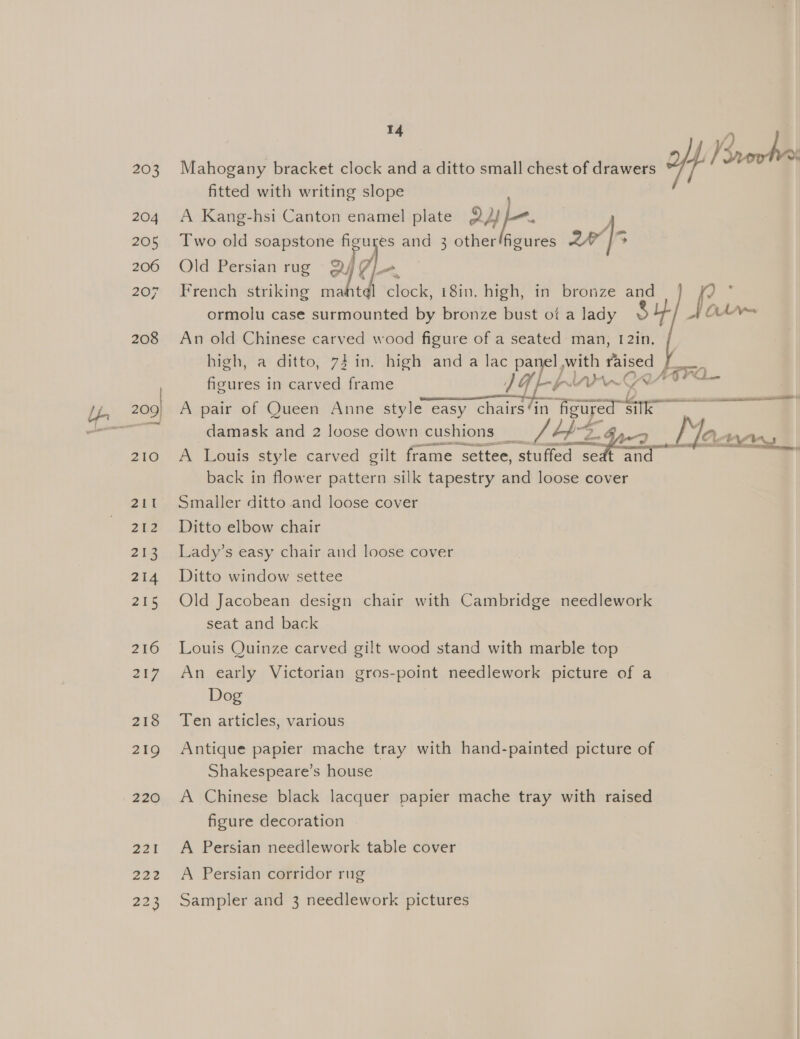 14
203 Mahogany bracket clock and a ditto small chest of drawers
fitted with writing slope
204 A Kang-hsi Canton enamel plate
205 Two old soapstone figures and 3 other figures
206 Old Persian rug
207 French striking mantel clock, 18in. high, in bronze and
ormolu case surmounted by bronze bust of a lady
208 An old Chinese carved wood figure of a seated man, 12in.
high, a ditto, 7½ in. high and a lac panel with raised
figures in carved frame
209 A pair of Queen Anne style easy chairs in figured silk
damask and 2 loose down cushions
210 A Louis style carved gilt frame settee, stuffed seat and
back in flower pattern silk tapestry and loose cover
211 Smaller ditto and loose cover
212 Ditto elbow chair
213 Lady's easy chair and loose cover
214 Ditto window settee
215 Old Jacobean design chair with Cambridge needlework
seat and back
216 Louis Quinze carved gilt wood stand with marble top
217 An early Victorian gros-point needlework picture of a
Dog
218 Ten articles, various
219 Antique papier mache tray with hand-painted picture of
Shakespeare's house
220 A Chinese black lacquer papier mache tray with raised
figure decoration
221 A Persian needlework table cover
222 A Persian corridor rug
223 Sampler and 3 needlework pictures